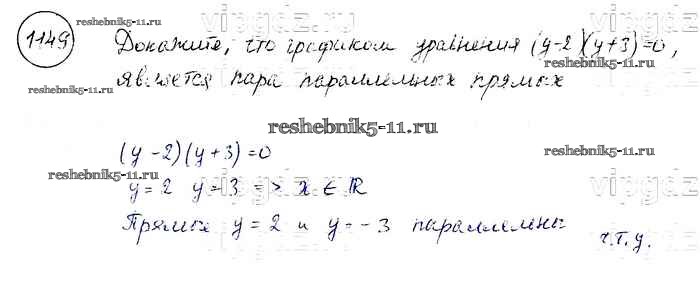 1149
Докажите, что графиком уравнения (y-2)(y+3)=0,
является пара параллельных прямых
(y-2)(y+3)=0
y=2 y=-3 => x ∈ ℝ
Прямые y=2 и y=-3 параллельны
ч.т.д.
reshebnik5-11.ru
reshebnik5-11.ru
reshebnik5-11.ru
reshebnik5-11.ru
reshebnik5-11.ru
reshebnik5-11.ru
vipgdz
vipgdz
vipgdz